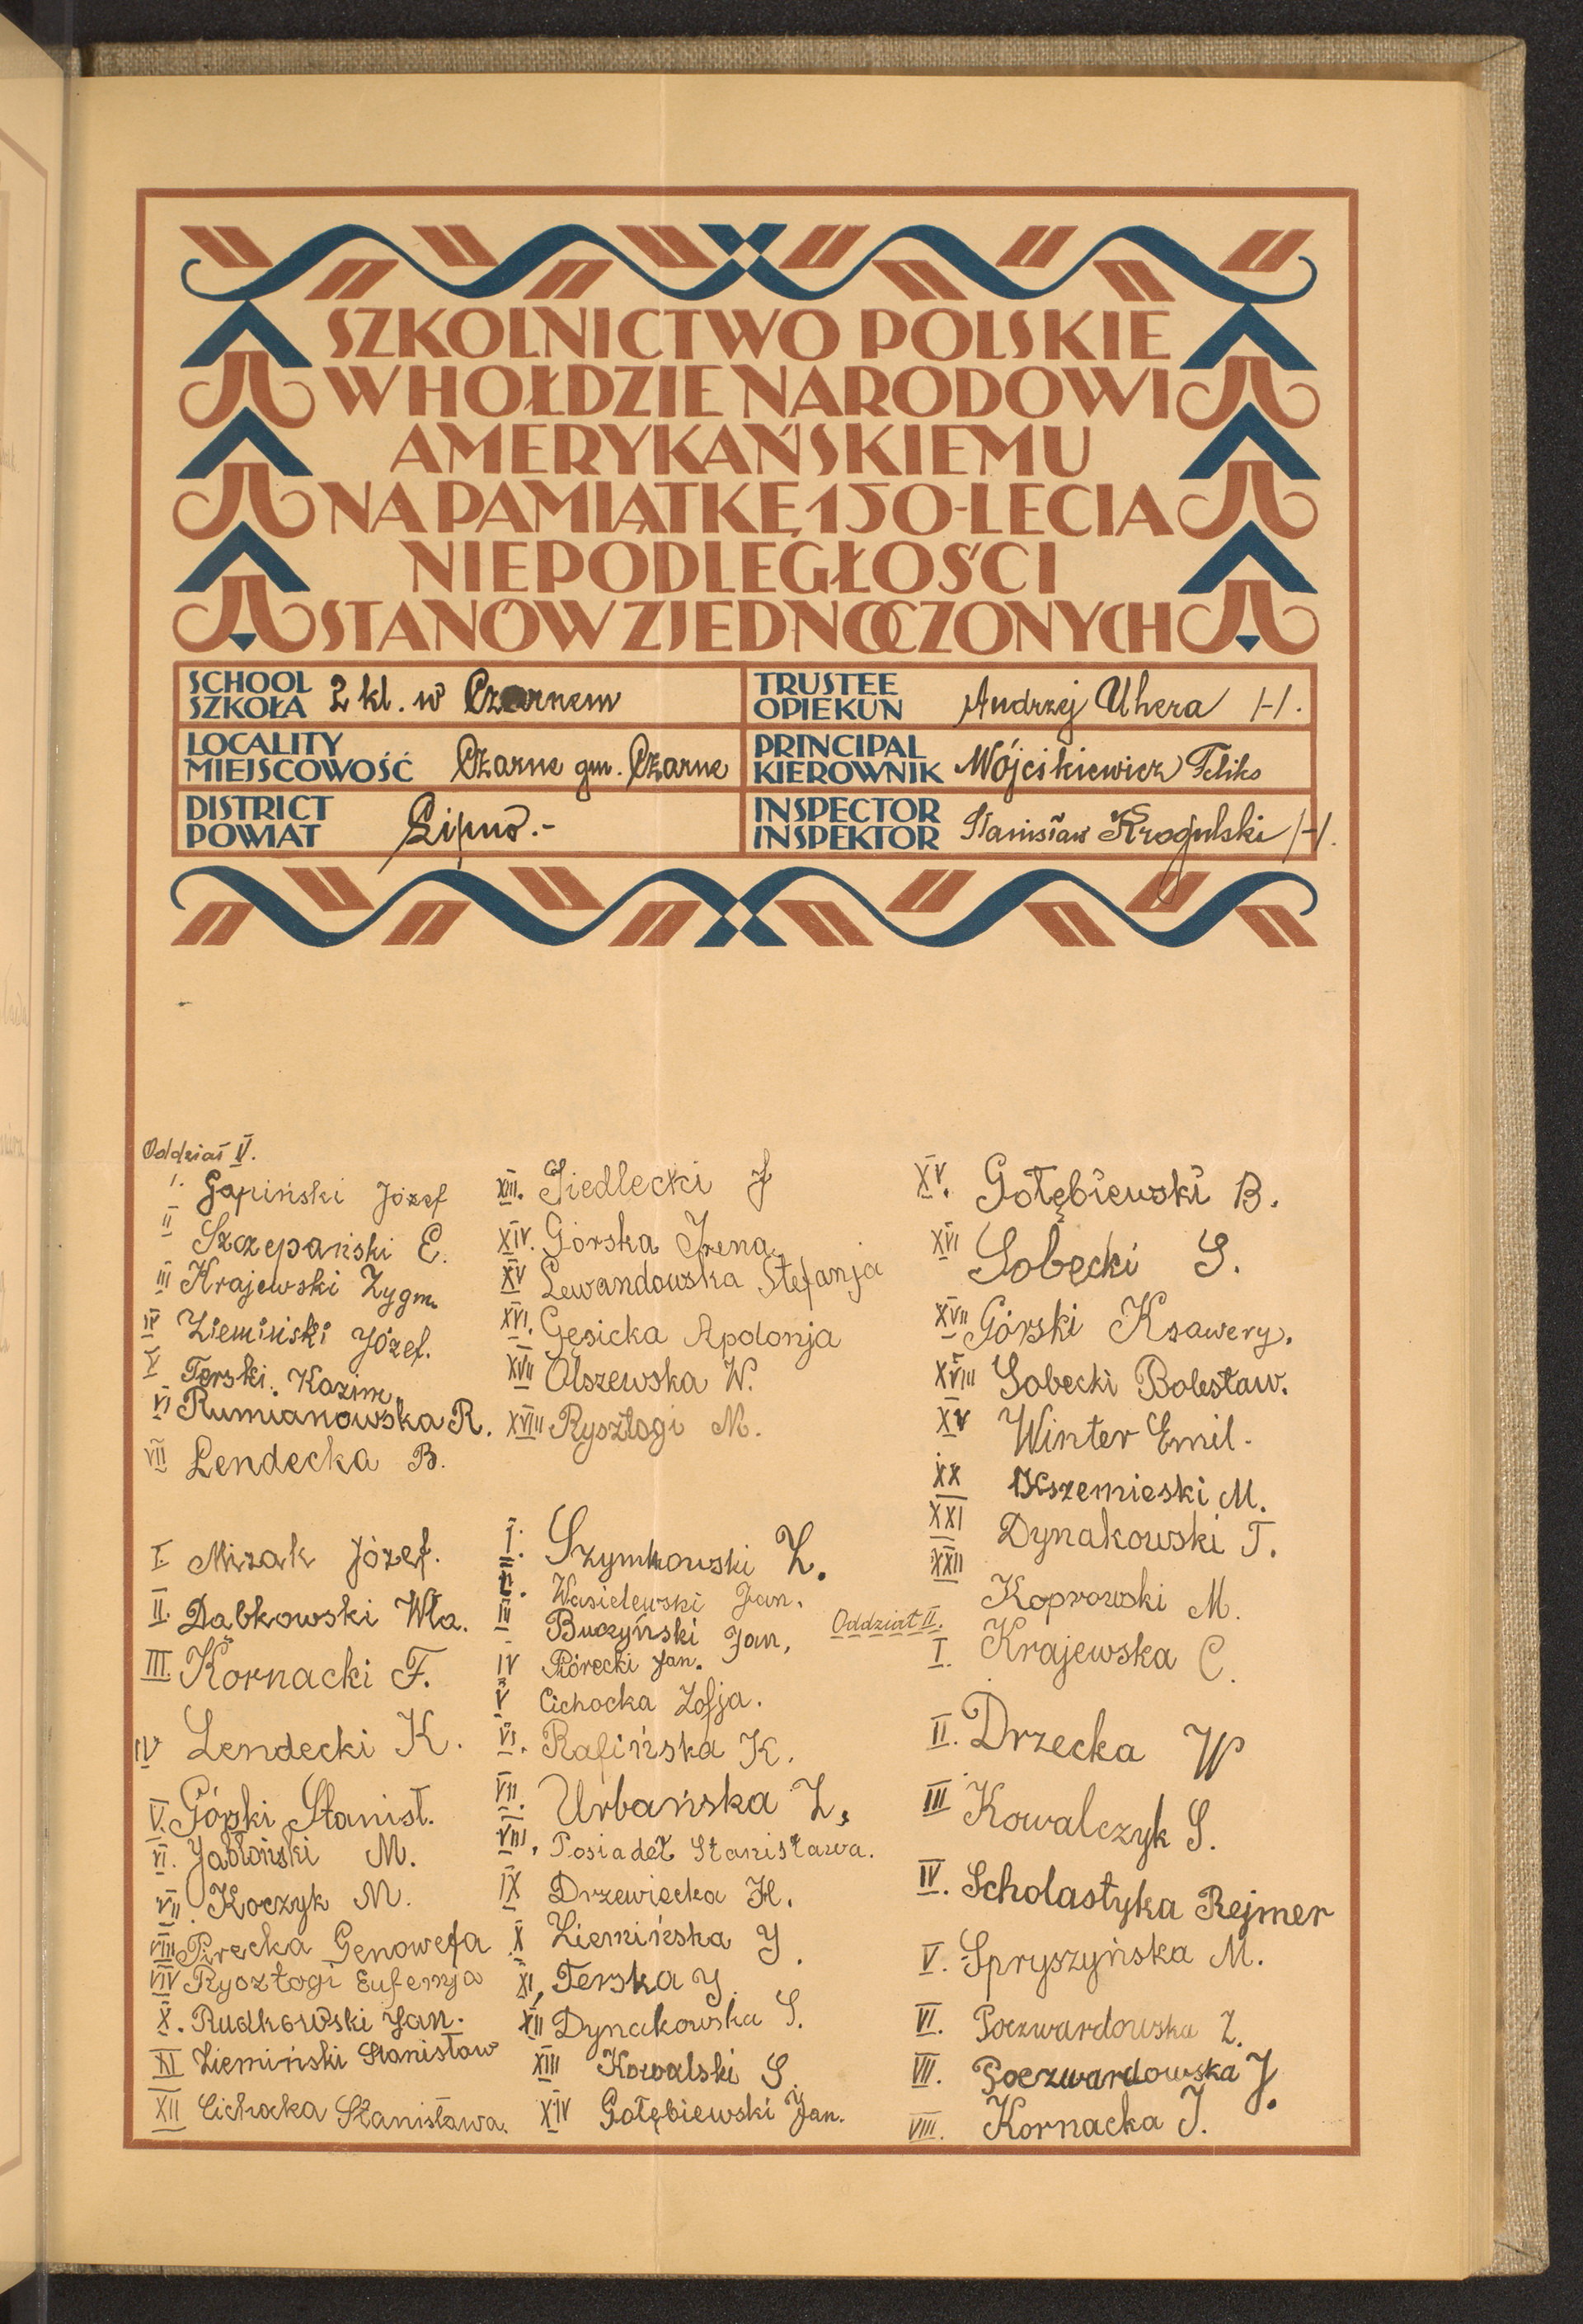 SZKOLNICTWO POLSKIE
W HOŁDZIE NARODOWI
AMERYKAŃSKIEMU
NA PAMIĄTKĘ 150-LECIA
NIEPODLEGŁOŚCI
STANÓW ZJEDNOCZONYCH
SCHOOL
SZKOŁA 2 kl. w Czarnem
TRUSTEE
OPIEKUN Andrzej Uhera /-/.
LOCALITY
MIEJSCOWOŚĆ Czarne gm. Czarne
PRINCIPAL
KIEROWNIK Wójcikiewicz Feliks
DISTRICT
POWIAT Lipno.-
INSPECTOR
INSPEKTOR Stanisław Krogulski /-/.
Oddział V.
I. Gapiński Józef
II Szczepański E.
III Krajewski Zygm.
IV Ziemiński Józef.
V Terski. Kazim.
VI Rumianowska R.
VII Lendecka B.
I Mizak Józef.
II. Dabkowski Wła.
III. Kornacki F.
IV Lendecki K.
V. Górski Stanisł.
VI. Jabłoński M.
VII Koczyk M.
VIII Pirecka Genowefa
VIV Rysztogi Eufemja
X. Rudkowski Jan.
XI Ziemiński Stanisław
XII Cichocka Stanisława.
XIII. Siedlecki J
XIV. Górska Irena
XV Lewandowska Stefanja
XVI. Gęsicka Apolonja
XVII Olszewska W.
XVIII Rysztogi M.
I. Szymkowski Z.
II. Wasielewski Jan.
III Buczyński Jan,
IV Piórecki Jan.
V Cichocka Zofja.
VI. Rafińska K.
VII. Urbańska Z,
VIII, Posiadeł Stanisława.
IX Drzewiecka H.
X Ziemińska J.
XI, Terska J.
XII Dynakowska S.
XIII Kowalski S.
XIV Gołębiewski Jan.
XV. Gołębiewski B.
XVI Sobęcki S.
XVII Górski Ksawery.
XVIII Sobecki Bolesław.
XV Winter Emil.
XX Kszemieski M.
XXI Dynakowski T.
XXII Koprowski M.
Oddział II.
I. Krajewska C.
II. Drzecka W
III Kowalczyk S.
IV. Scholastyka Rejmer
V. Spryszyńska M.
VI. Poczwardowska Z.
VII. Poczwardowska J.
VIII. Kornacka J.